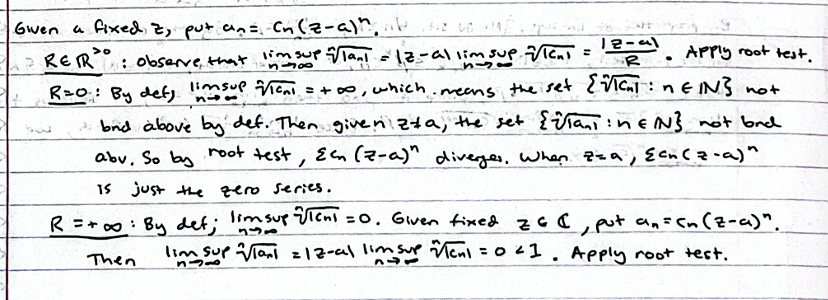 Given a fixed z, put aₙ = cₙ(z-a)ⁿ.
R ∈ ℝ^{>0} : observe that limsup_{n→∞} ⁿ√|aₙ| = |z-a| limsup_{n→∞} ⁿ√|cₙ| = |z-a|/R . Apply root test.
R=0 : By def, limsup_{n→∞} ⁿ√|cₙ| = +∞, which means the set {ⁿ√|cₙ| : n ∈ ℕ} not
bnd above by def. Then given z≠a, the set {ⁿ√|aₙ| : n ∈ ℕ} not bnd
abv. So by root test, Σcₙ(z-a)ⁿ diverges. When z=a, Σcₙ(z-a)ⁿ
is just the zero series.
R = +∞ : By def, limsup_{n→∞} ⁿ√|cₙ| = 0. Given fixed z ∈ ℂ, put aₙ = cₙ(z-a)ⁿ.
Then limsup_{n→∞} ⁿ√|aₙ| = |z-a| limsup_{n→∞} ⁿ√|cₙ| = 0 < 1 . Apply root test.